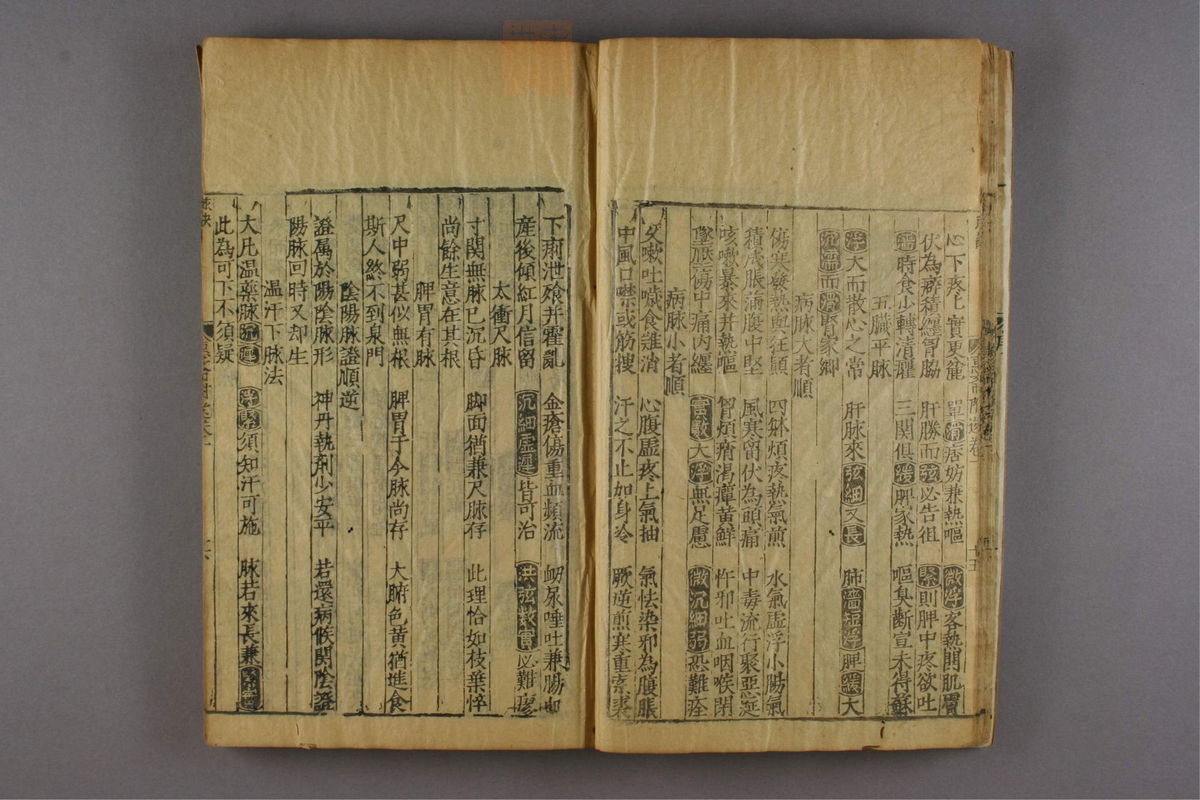 心下疼亡實更籠 單滑痞妨兼熱嘔 微浮客熱開肌膚
伏為癖積纏胃脇 肝勝而弦必告徂 緊則脾中疼欲吐
濇時食少轉清癯 三關俱緩脾家熱 嘔臭斷宣木得蘇
五臟平脉
浮大而散心之常 肝脉來弦細又長 肺濇短浮脾緩大
沉濡而滑腎家鄉
病脉大者順
傷寒發熱與狂顛 四體煩疼熱氣煎 水氣虛浮小腸氣
積成脹滿腹中堅 風寒留伏為頭痛 中毒流行聚惡涎
咳嗽暴來并熱嘔 胃煩痟渴癉黃鮮 忤邪吐血咽喉閉
墜脹傷中痛內纏 實數大浮無足慮 微沉細弱恐難痊
病脉小者順
久嗽吐噦食誰消 心腹虛疼上氣抽 氣怯染邪為腹脹
中風口噤或筋搜 汗之不止如身冷 厥逆煎寒重索裘
下痢泄飱并霍亂 金瘡傷重血頻流 衂尿唾吐兼腸血
產後傾紅月信留 沉細虛遲皆可治 洪弦數實必難瘳
太衝尺脉
寸關無脉已沉昏 脚面猶兼尺脉存 此理恰如枝葉悴
尚餘生意在其根
脾胃有脉
尺中弱甚似無根 脾胃于今脉尚存 大腑色黃猶進食
斯人終不到泉門
陰陽脉證順逆
證屬於陽陰脉形 神丹執劑少安平 若還病候関陰證
陽脉回時又却生
温汗下脉法
大凡温藥脉沉遲 浮緊須知汗可施 脉若來長兼
此為可下不須疑